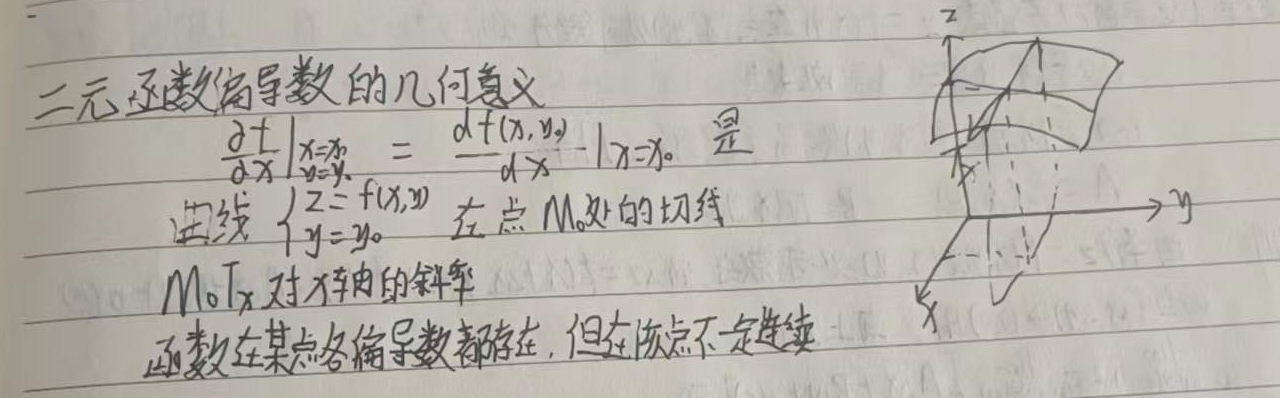 二元函数偏导数的几何意义
∂f/∂x |x=x₀ y=y₀ = df(x,y₀)/dx |x=x₀ 是
曲线 { z=f(x,y) y=y₀ 在点M₀处的切线
M₀Tx对x轴的斜率
函数在某点各偏导数都存在,但在该点不一定连续
z
y
x